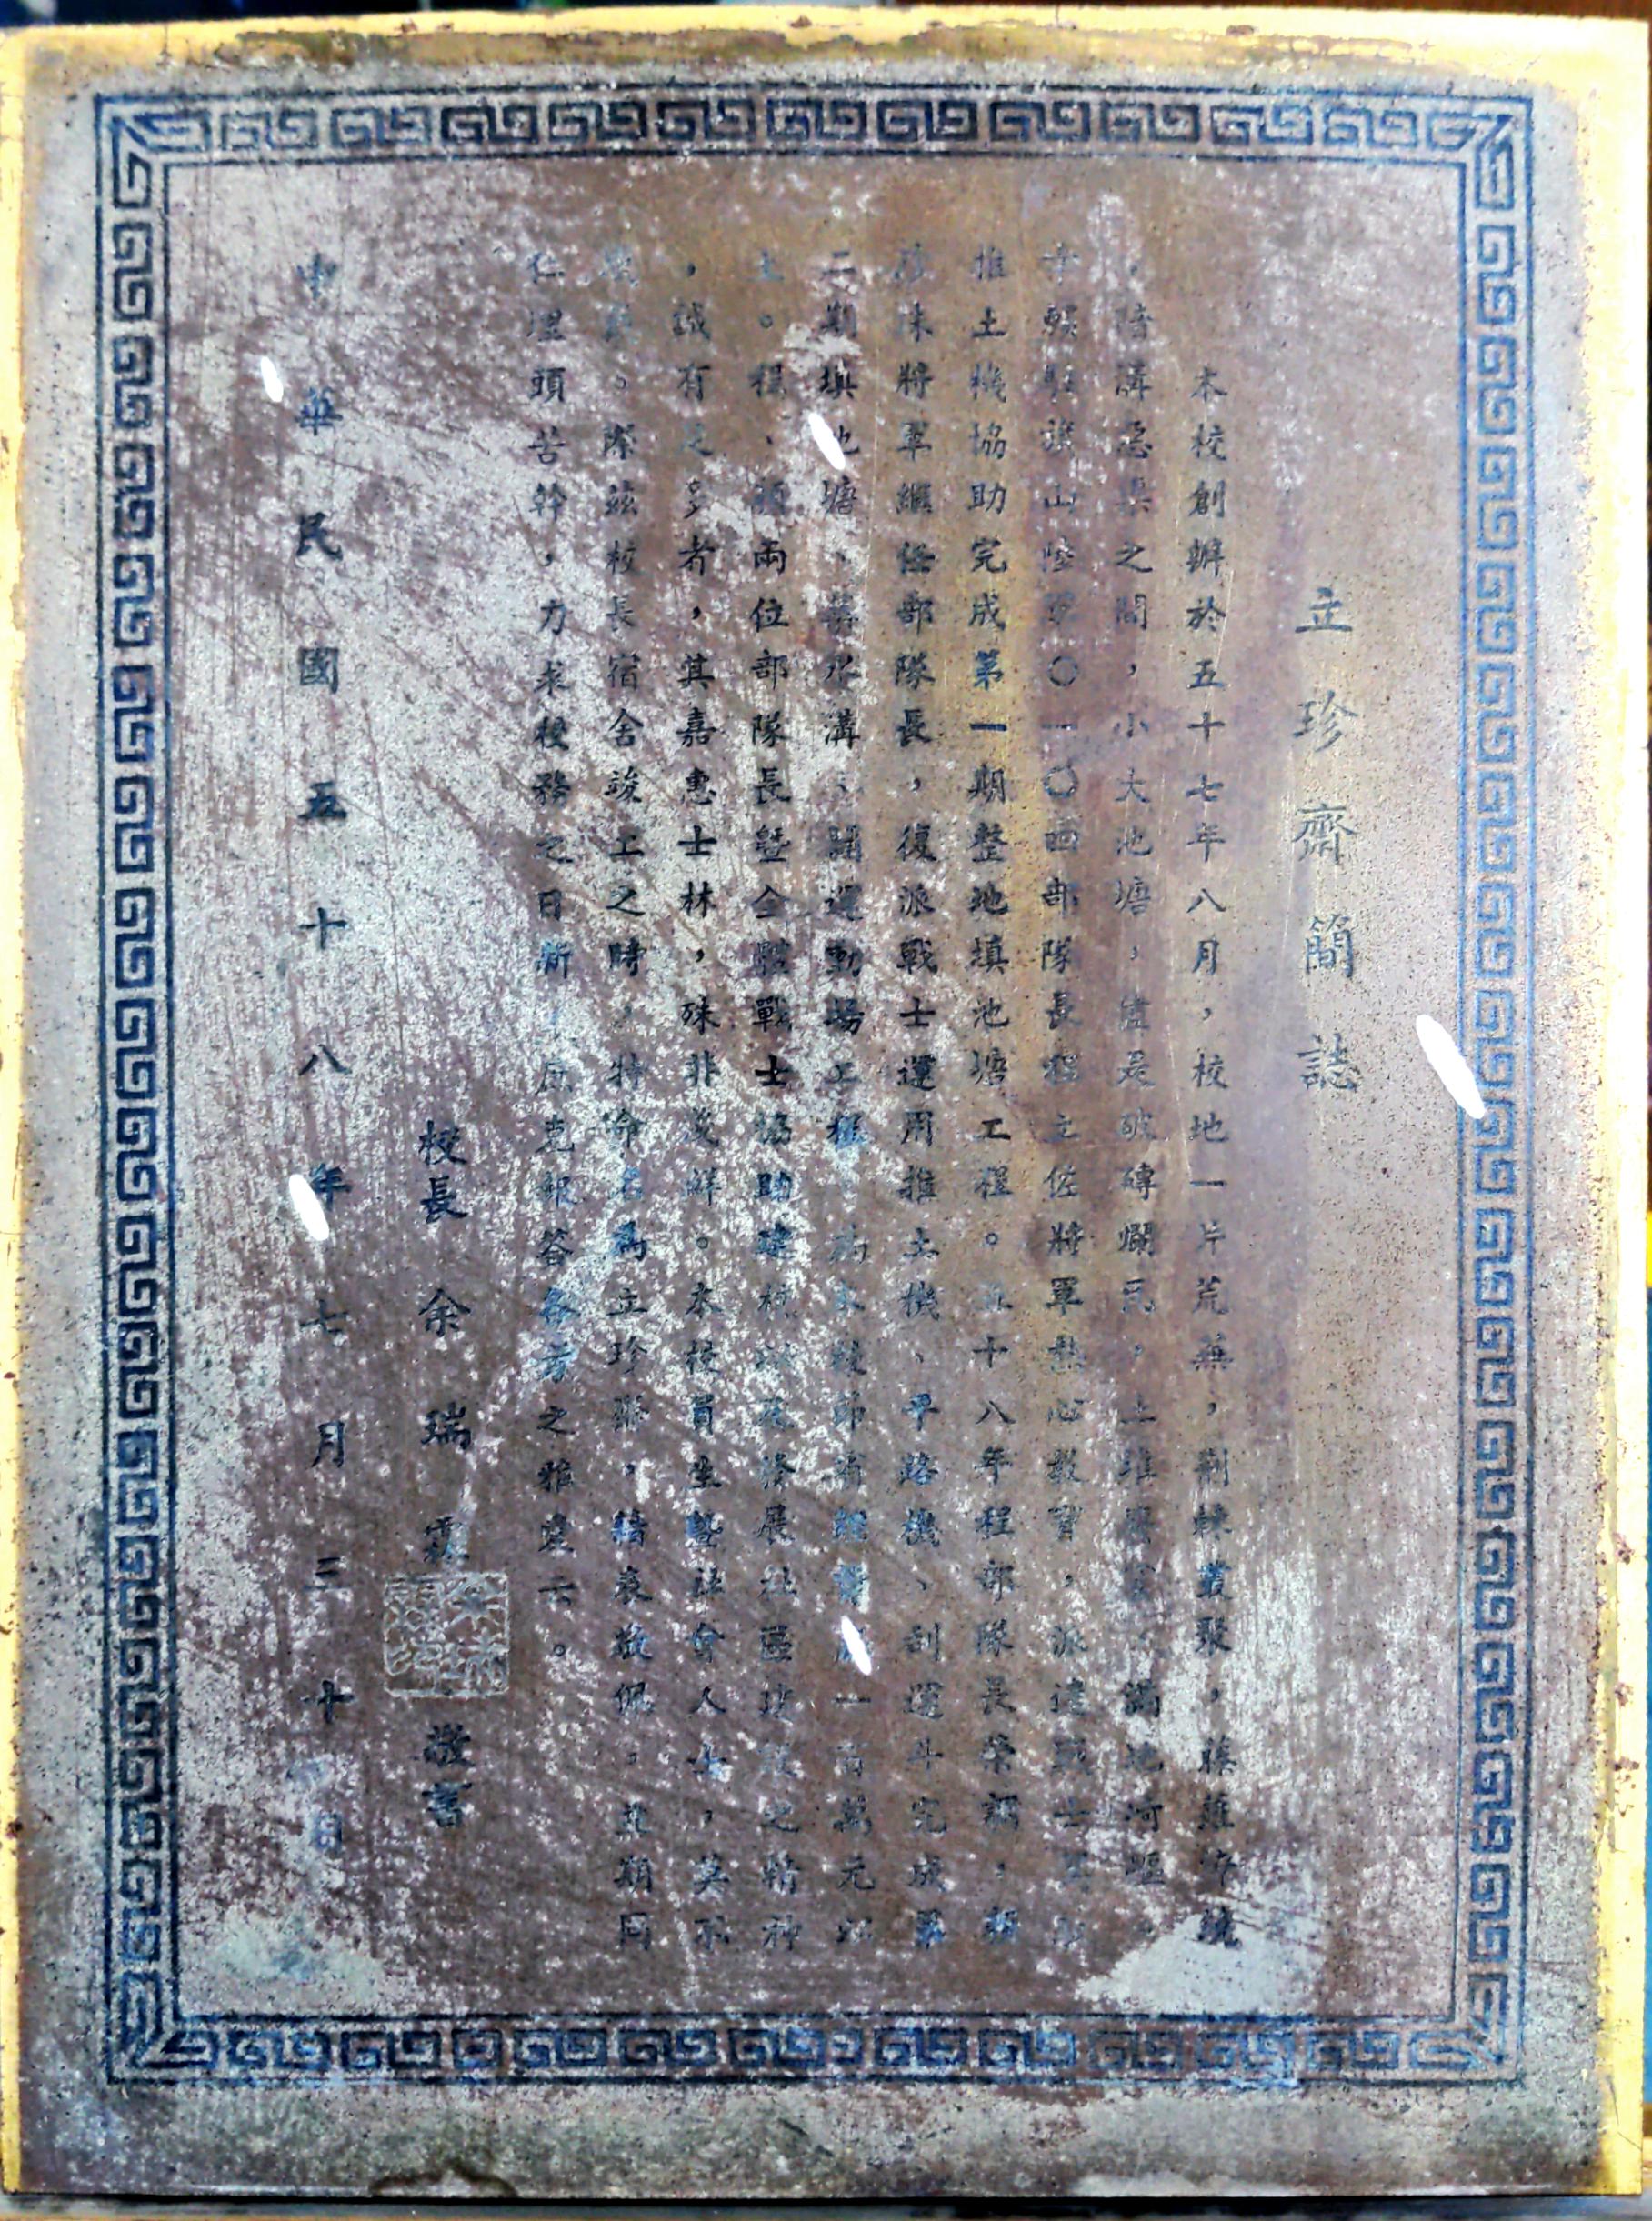 立珍齋簡誌
本校創辦於五十七年八月，校地一片荒蕪，荊棘叢聚，藤蘿
，溝之間，小大池塘，盡是破磚爛瓦，土堆滿地崎嶇
幸賴山陸軍〇一〇四部隊長程立佐將軍熱心教育，派遣戰士
推土機協助完成第一期整地填池塘工程。五十八年程部隊長榮調，顏
珍陳將軍繼任部隊長，復派戰士運用推土機、平路機、刮運斗完成第
二期填池塘、水溝、闢運動場工程，為本校節省經費一百萬元以
上。程、顏兩位部隊長暨全體戰士協助建校發展社區建設之精神
，誠有足多者，其嘉惠士林，殊非淺鮮。本校員生暨社會人士，莫不
。際茲校長宿舍竣工之時，特命名為立珍齋，藉表敬佩，並期同
仁埋頭苦幹，力求校務之日新，庶克報答各方之雅意云。
校長 余瑞霖 敬書
中華民國五十八年七月三十日